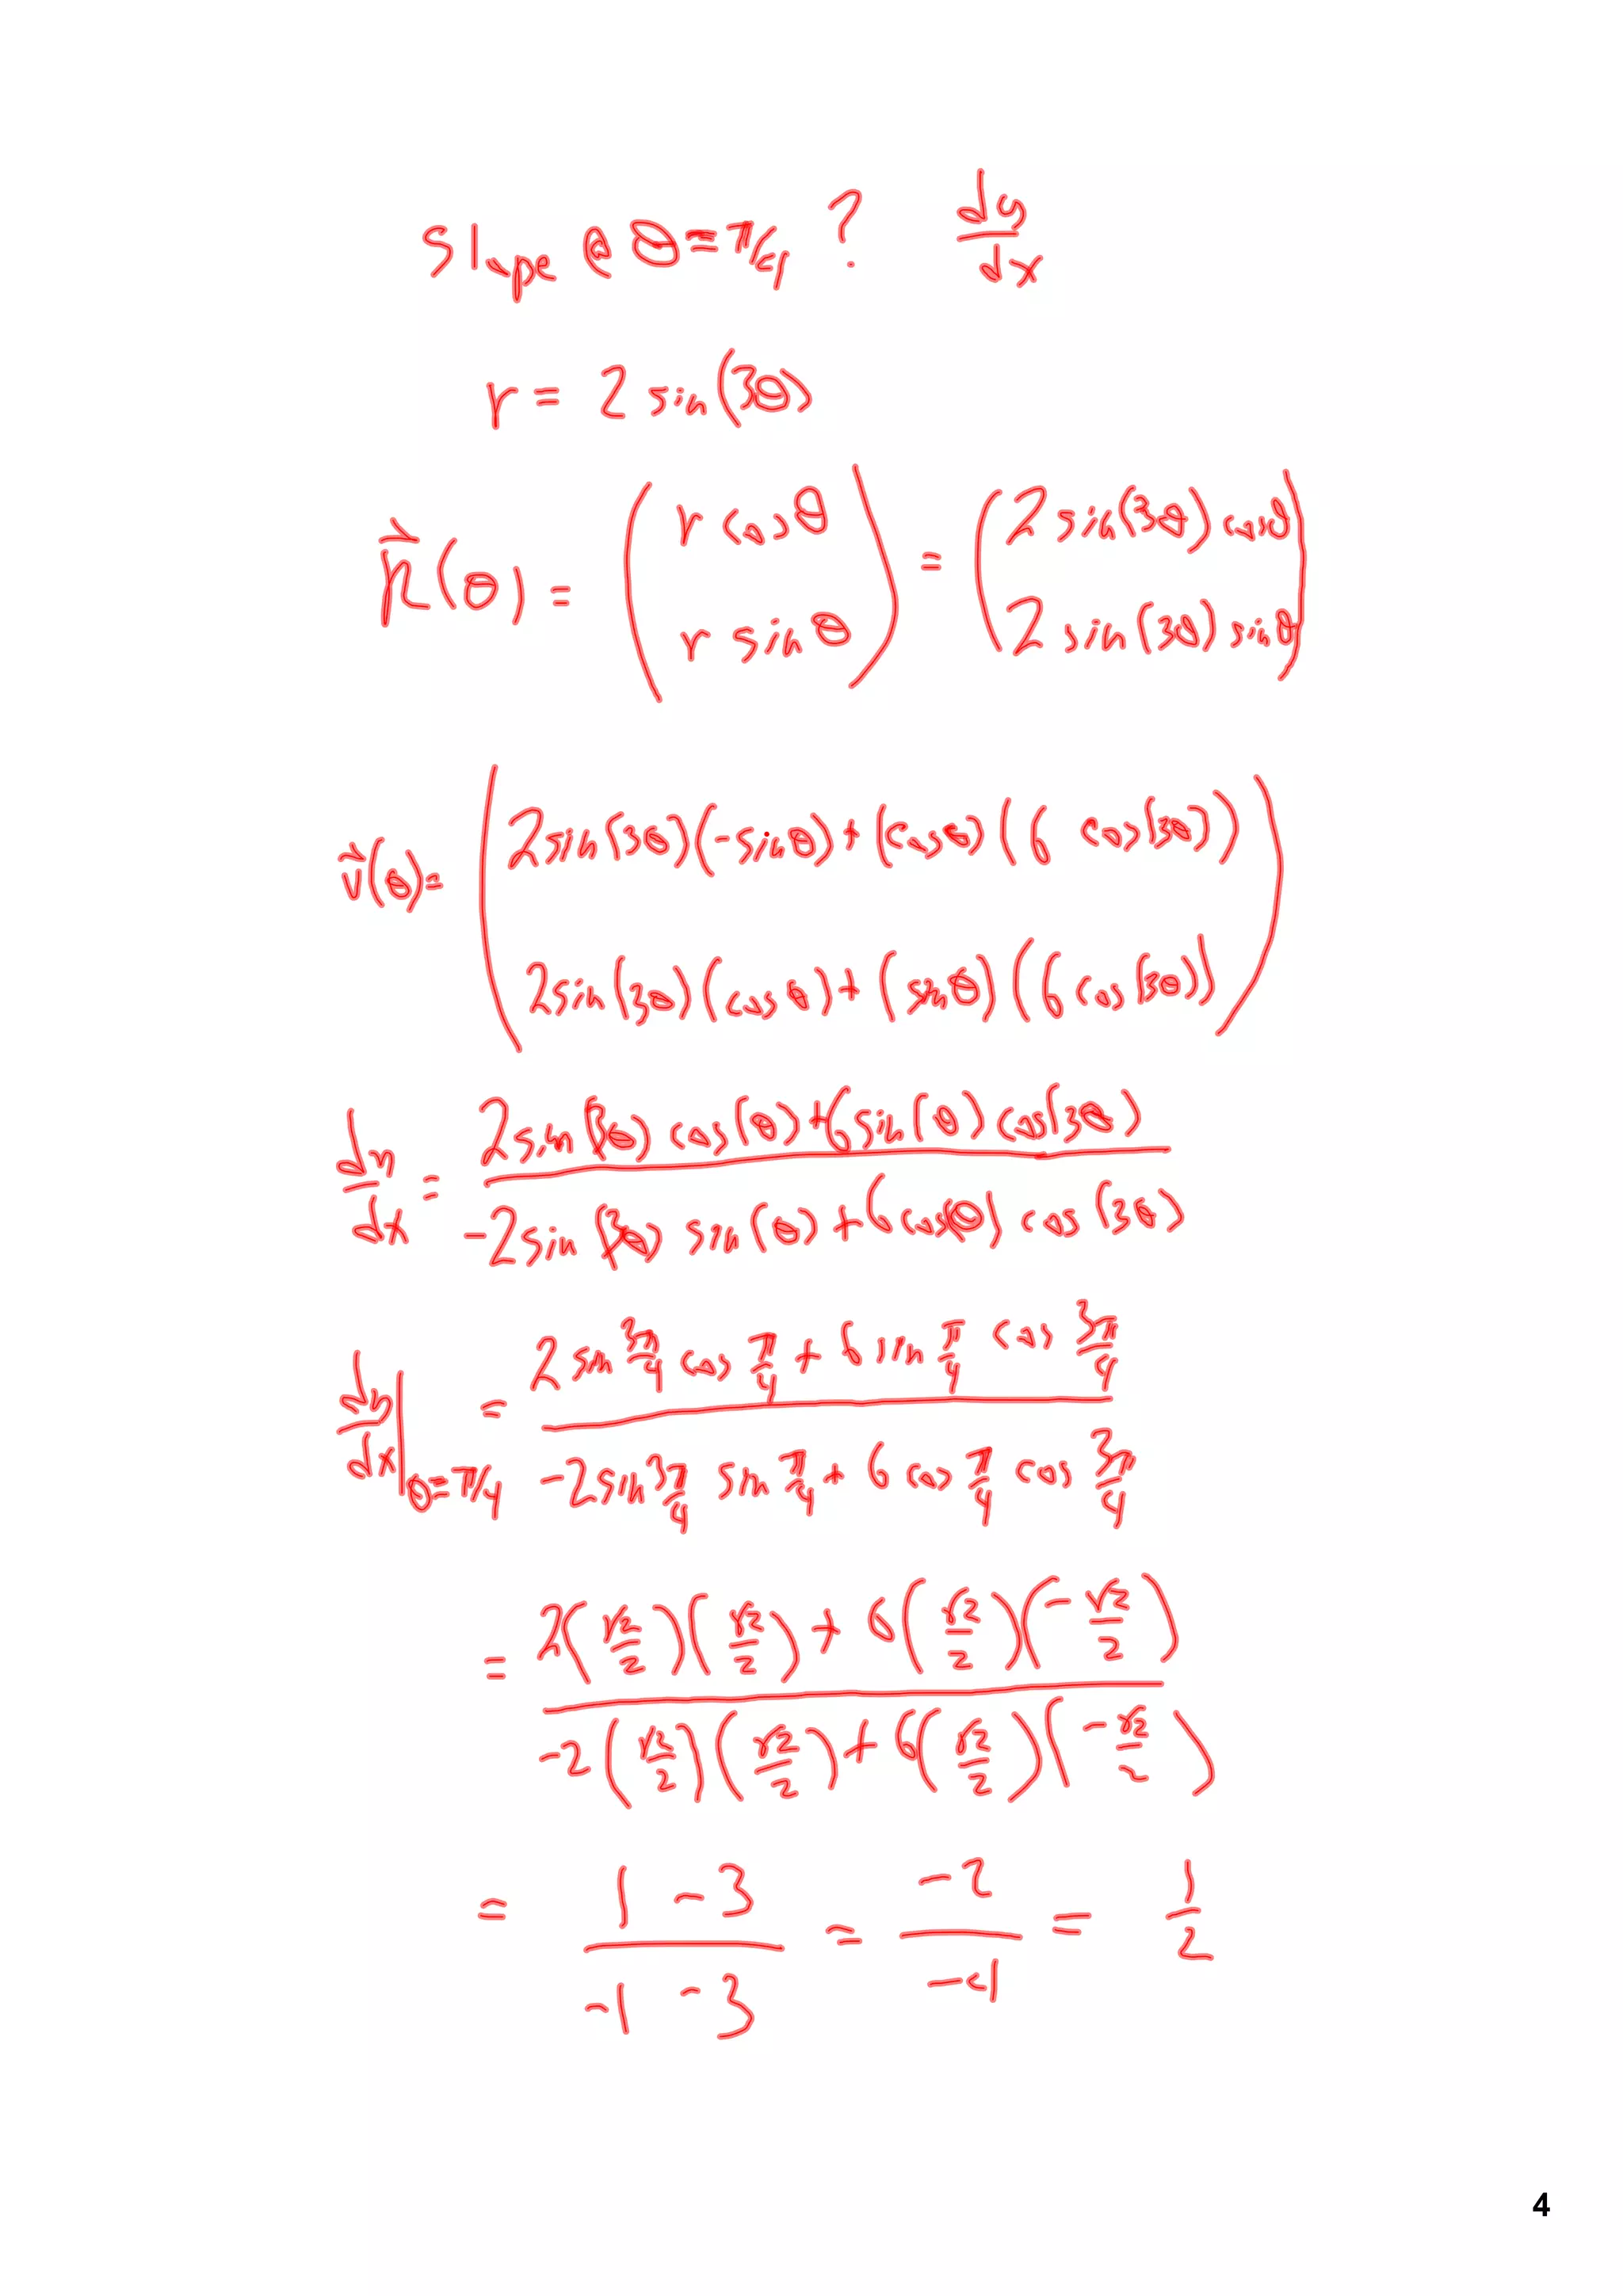 slope @ θ = π/4 ? dy/dx
r = 2 sin(3θ)
r⃗(θ) = ( r cosθ ) = ( 2 sin(3θ) cosθ )
( r sinθ ) ( 2 sin(3θ) sinθ )
v⃗(θ) = ( 2sin(3θ)(-sinθ) + (cosθ)(6 cos(3θ)) )
( 2sin(3θ)(cosθ) + (sinθ)(6 cos(3θ)) )
dy/dx = 2sin(3θ) cos(θ) + 6 sin(θ) cos(3θ)
-2sin(3θ) sin(θ) + 6 cos(θ) cos(3θ)
dy/dx |θ=π/4 = 2 sin 3π/4 cos π/4 + 6 sin π/4 cos 3π/4
-2 sin 3π/4 sin π/4 + 6 cos π/4 cos 3π/4
= 2(√2/2)(√2/2) + 6(√2/2)(-√2/2)
-2(√2/2)(√2/2) + 6(√2/2)(-√2/2)
= 1 - 3 / -1 - 3 = -2 / -4 = 1/2
4